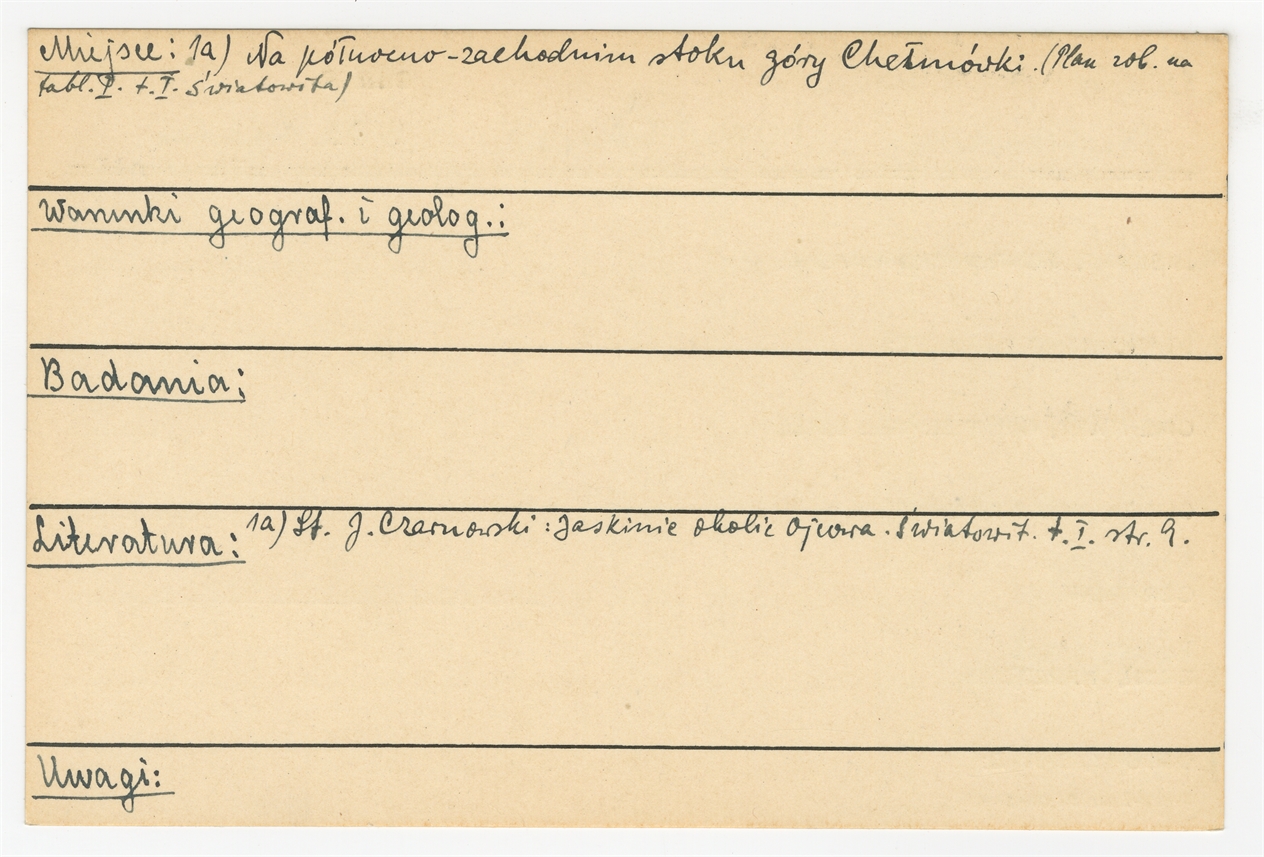 Miejsce: 1a) Na północno-zachodnim stoku góry Chełmówki. (Plan zob. na
tabl. I. t. I. Światowita)
Warunki geograf. i geolog.:
Badania:
Literatura: 1a) St. J. Czarnowski: Jaskinie okolic Ojcowa. Światowit. t. I. str. 9.
Uwagi: